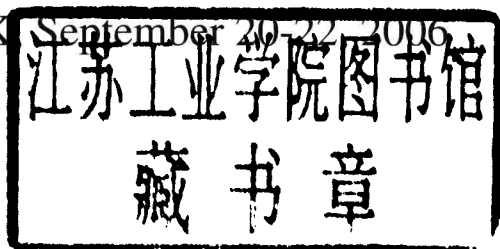 September 20-22, 2006
江苏工业学院图书馆
藏书章